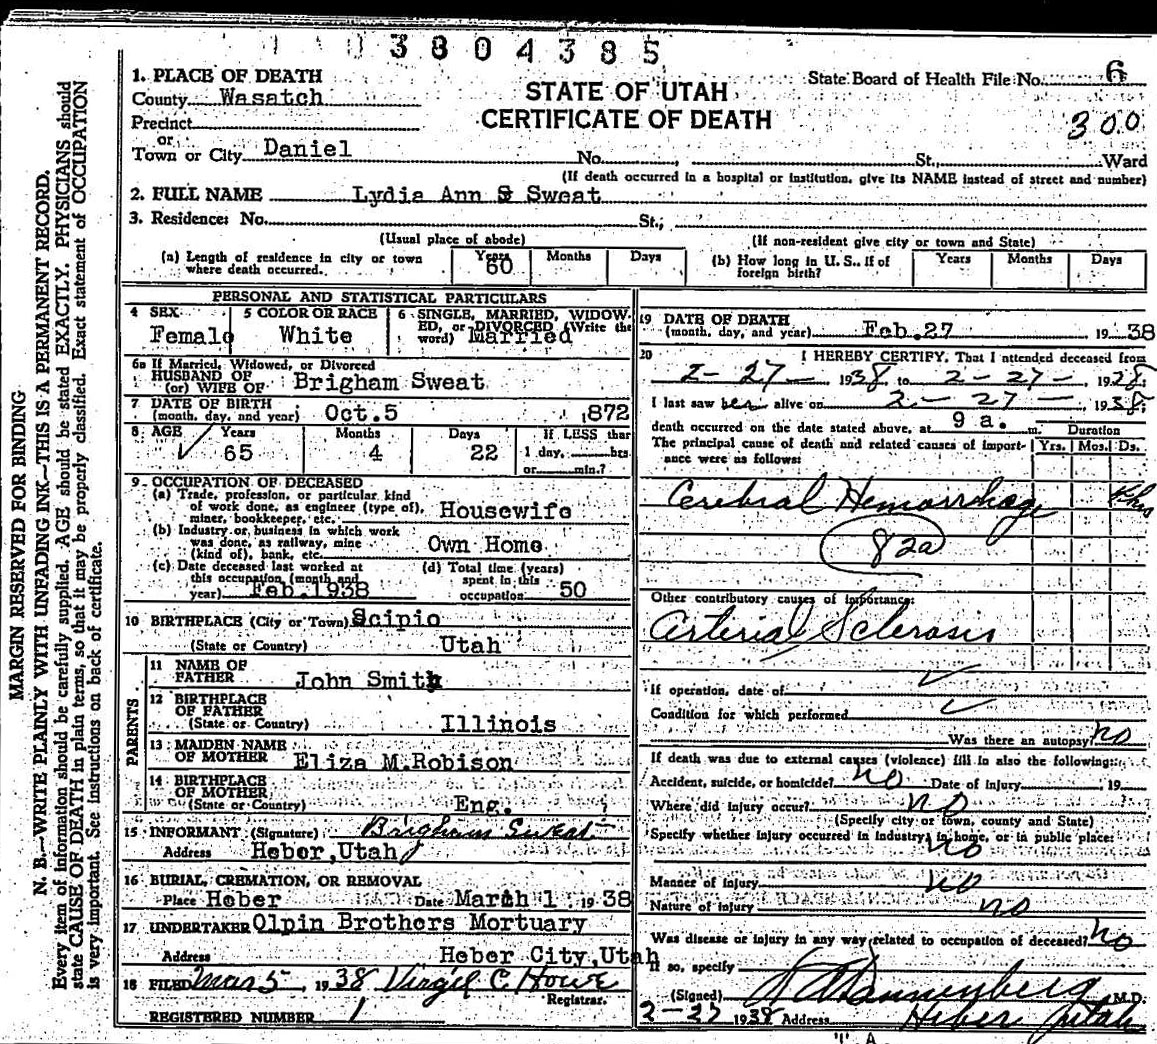 3804385
State Board of Health File No. 6
1. PLACE OF DEATH
County Wasatch
STATE OF UTAH
CERTIFICATE OF DEATH
300
Precinct
or
Town or City Daniel No. , St., Ward
(If death occurred in a hospital or institution, give its NAME instead of street and number)
2. FULL NAME Lydia Ann S Sweat
3. Residence: No. St.,
(Usual place of abode) (If non-resident give city or town and State)
(a) Length of residence in city or town where death occurred. Years 60 Months Days
(b) How long in U. S., if of foreign birth? Years Months Days
PERSONAL AND STATISTICAL PARTICULARS
4 SEX Female
5 COLOR OR RACE White
6 SINGLE, MARRIED, WIDOWED, or DIVORCED (Write the word) Married
6a If Married, Widowed, or Divorced
HUSBAND OF
(or) WIFE OF Brigham Sweat
7 DATE OF BIRTH
(month, day, and year) Oct.5 1872
8 AGE Years 65 Months 4 Days 22
If LESS than
1 day, hrs.
or min.?
9 OCCUPATION OF DECEASED
(a) Trade, profession, or particular kind
of work done, as engineer (type of),
miner, bookkeeper, etc. Housewife
(b) Industry or business in which work
was done, as railway, mine
(kind of), bank, etc. Own Home
(c) Date deceased last worked at
this occupation (month and
year) Feb.1938
(d) Total time (years)
spent in this
occupation 50
10 BIRTHPLACE (City or Town) Scipio
(State or Country) Utah
PARENTS
11 NAME OF
FATHER John Smith
12 BIRTHPLACE
OF FATHER
(State or Country) Illinois
13 MAIDEN NAME
OF MOTHER Eliza M.Robison
14 BIRTHPLACE
OF MOTHER
(State or Country) Eng.
15 INFORMANT (Signature) Brigham Sweat
Address Heber,Utah
16 BURIAL, CREMATION, OR REMOVAL
Place Heber Date March 1 1938
17 UNDERTAKER Olpin Brothers Mortuary
Address Heber City,Utah
18 FILED Mar 5, 1938 Virgil C Howe
Registrar.
REGISTERED NUMBER 1
19 DATE OF DEATH
(month, day, and year) Feb.27 1938
20 I HEREBY CERTIFY, That I attended deceased from
2-27- 1938 to 2-27-, 1938
I last saw her alive on 2-27- 1938
death occurred on the date stated above, at 9 a. m. Duration
The principal cause of death and related causes of importance were as follows: Yrs. Mos. Ds.
Cerebral Hemorrhage
82a
Other contributory causes of importance:
Arterial Sclerosis
If operation, date of
Condition for which performed
Was there an autopsy? no
If death was due to external causes (violence) fill in also the following:
Accident, suicide, or homicide? no Date of injury , 19
Where did injury occur? no
(Specify city or town, county and State)
Specify whether injury occurred in industry, in home, or in public place:
no
Manner of injury no
Nature of injury no
Was disease or injury in any way related to occupation of deceased? no
If so, specify
(Signed) Dannenberg M.D.
2-27 1938 Address Heber Utah
MARGIN RESERVED FOR BINDING
N. B.—WRITE PLAINLY WITH UNFADING INK—THIS IS A PERMANENT RECORD.
Every item of information should be carefully supplied. AGE should be stated EXACTLY. PHYSICIANS should
state CAUSE OF DEATH in plain terms, so that it may be properly classified. Exact statement of OCCUPATION
is very important. See instructions on back of certificate.